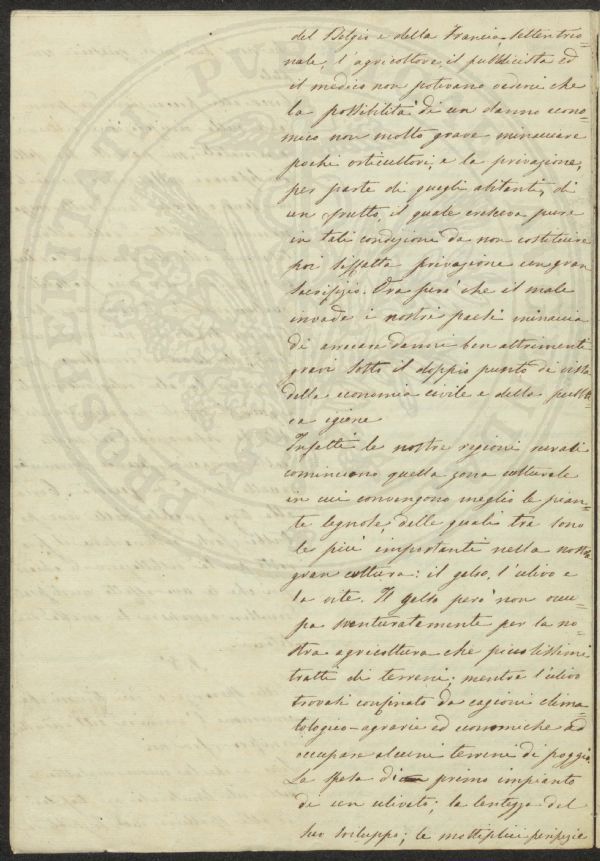 del Belgio e della Francia settentrio-
nale, l'agricoltore, il pubblicista ed
il medico non potevano vedervi che
la possibilità di un danno econo-
mico non molto grave minacciare
pochi orticultori, e la privazione,
per parte di quegli abitanti, di
un frutto, il quale cresceva pure
in tali condizioni da non costituire
poi siffatta privazione un gran
sacrifizio. Ora però che il male
invade i nostri paesi minaccia
di arrecare danni ben altrimenti
gravi sotto il doppio punto di vista
della economia civile e della pubbli-
ca igiene
Infatti le nostre regioni rurali
cominciano quella zona culturale
in cui convengono meglio le pian-
te legnose, delle quali tre sono
le più importanti nella nostra
gran coltura: il gelso, l'ulivo e
la vite. Il gelso però non occu-
pa sventuratamente per la no-
stra agricoltura che piccolissimi
tratti di terreni; mentre l'ulivo
trovasi confinato da cagioni clima-
tologico-agrarie ed economiche ad
occupare alcuni terreni di poggio.
La spesa di primo impianto
di un uliveto; la lentezza del
suo sviluppo; le molteplici peripezie
PROSPERITATI PUBLICAE